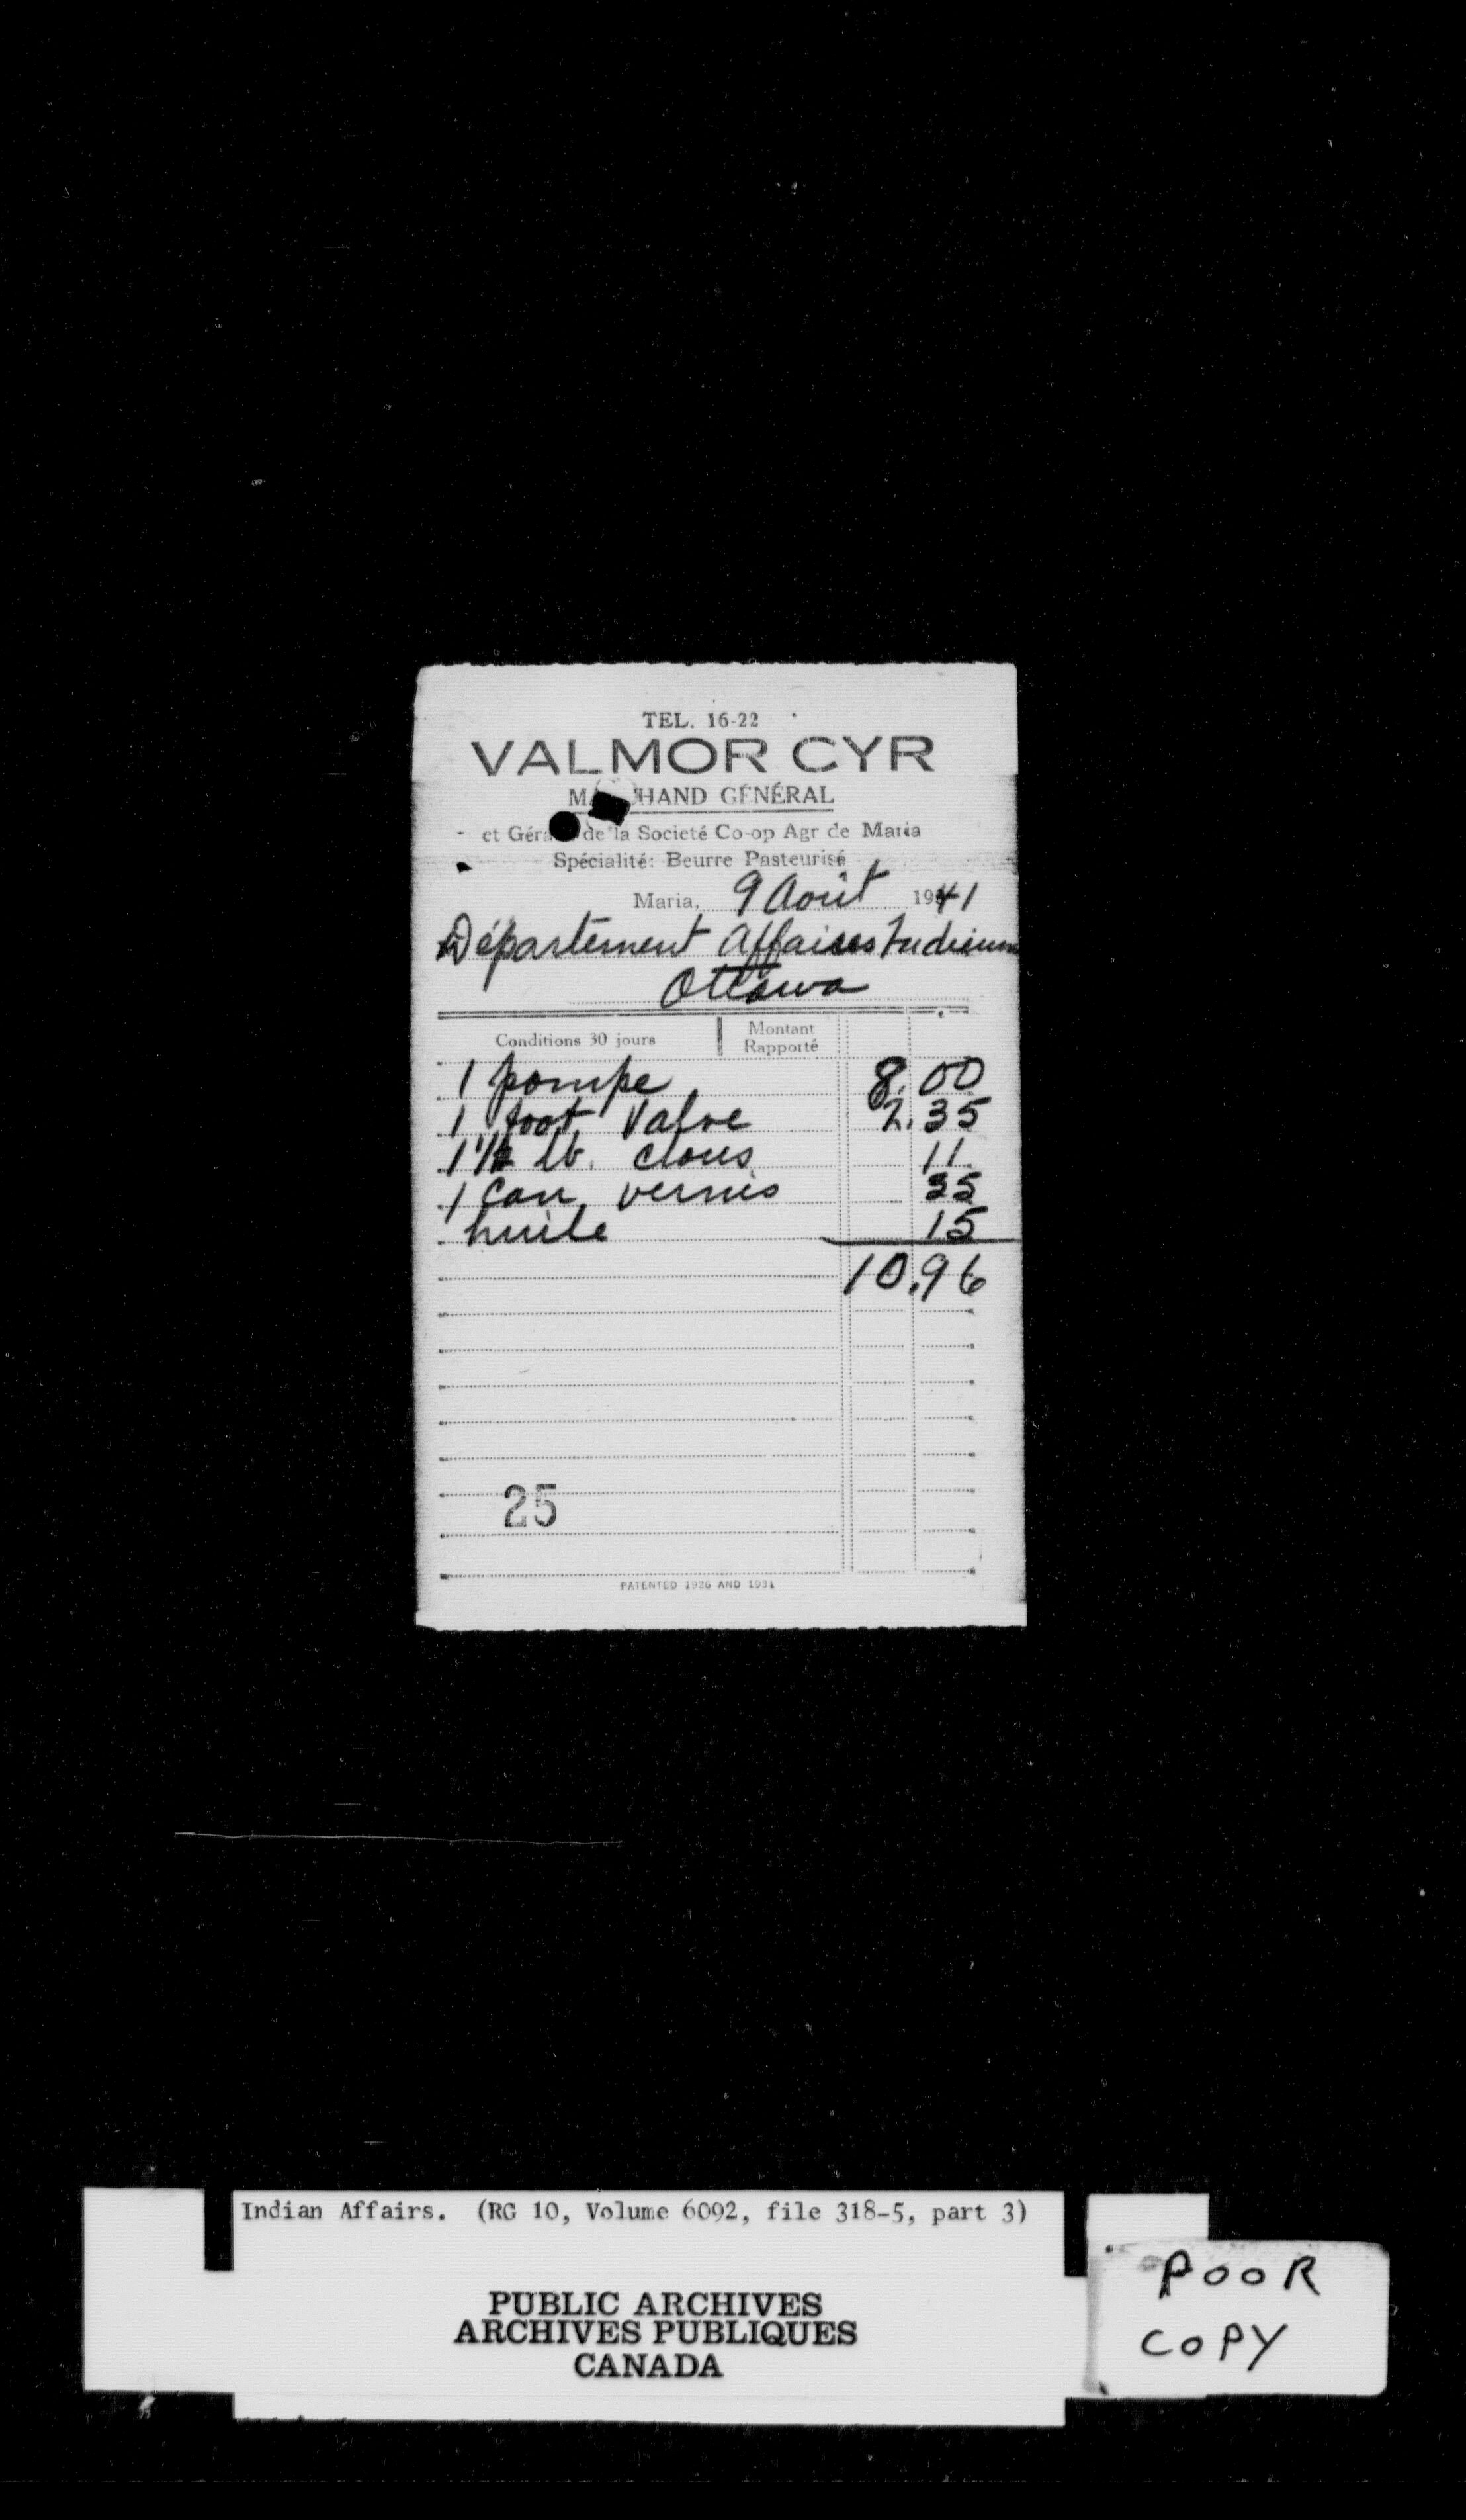 TEL. 16-22
VALMOR CYR
MARCHAND GÉNÉRAL
et Gérant de la Societé Co-op Agr de Maria
Spécialité: Beurre Pasteurisé
Maria, 9 Août 1941
Département Affaires Indiennes
Ottawa
Conditions 30 jours Montant Rapporté
1 pompe 8.00
1 foot Valve 2.35
1 1/2 lb. clous 11
1 Can vernis 35
huile 15
10.96
25
PATENTED 1926 AND 1931
Indian Affairs. (RG 10, Volume 6092, file 318-5, part 3)
PUBLIC ARCHIVES
ARCHIVES PUBLIQUES
CANADA
POOR
COPY